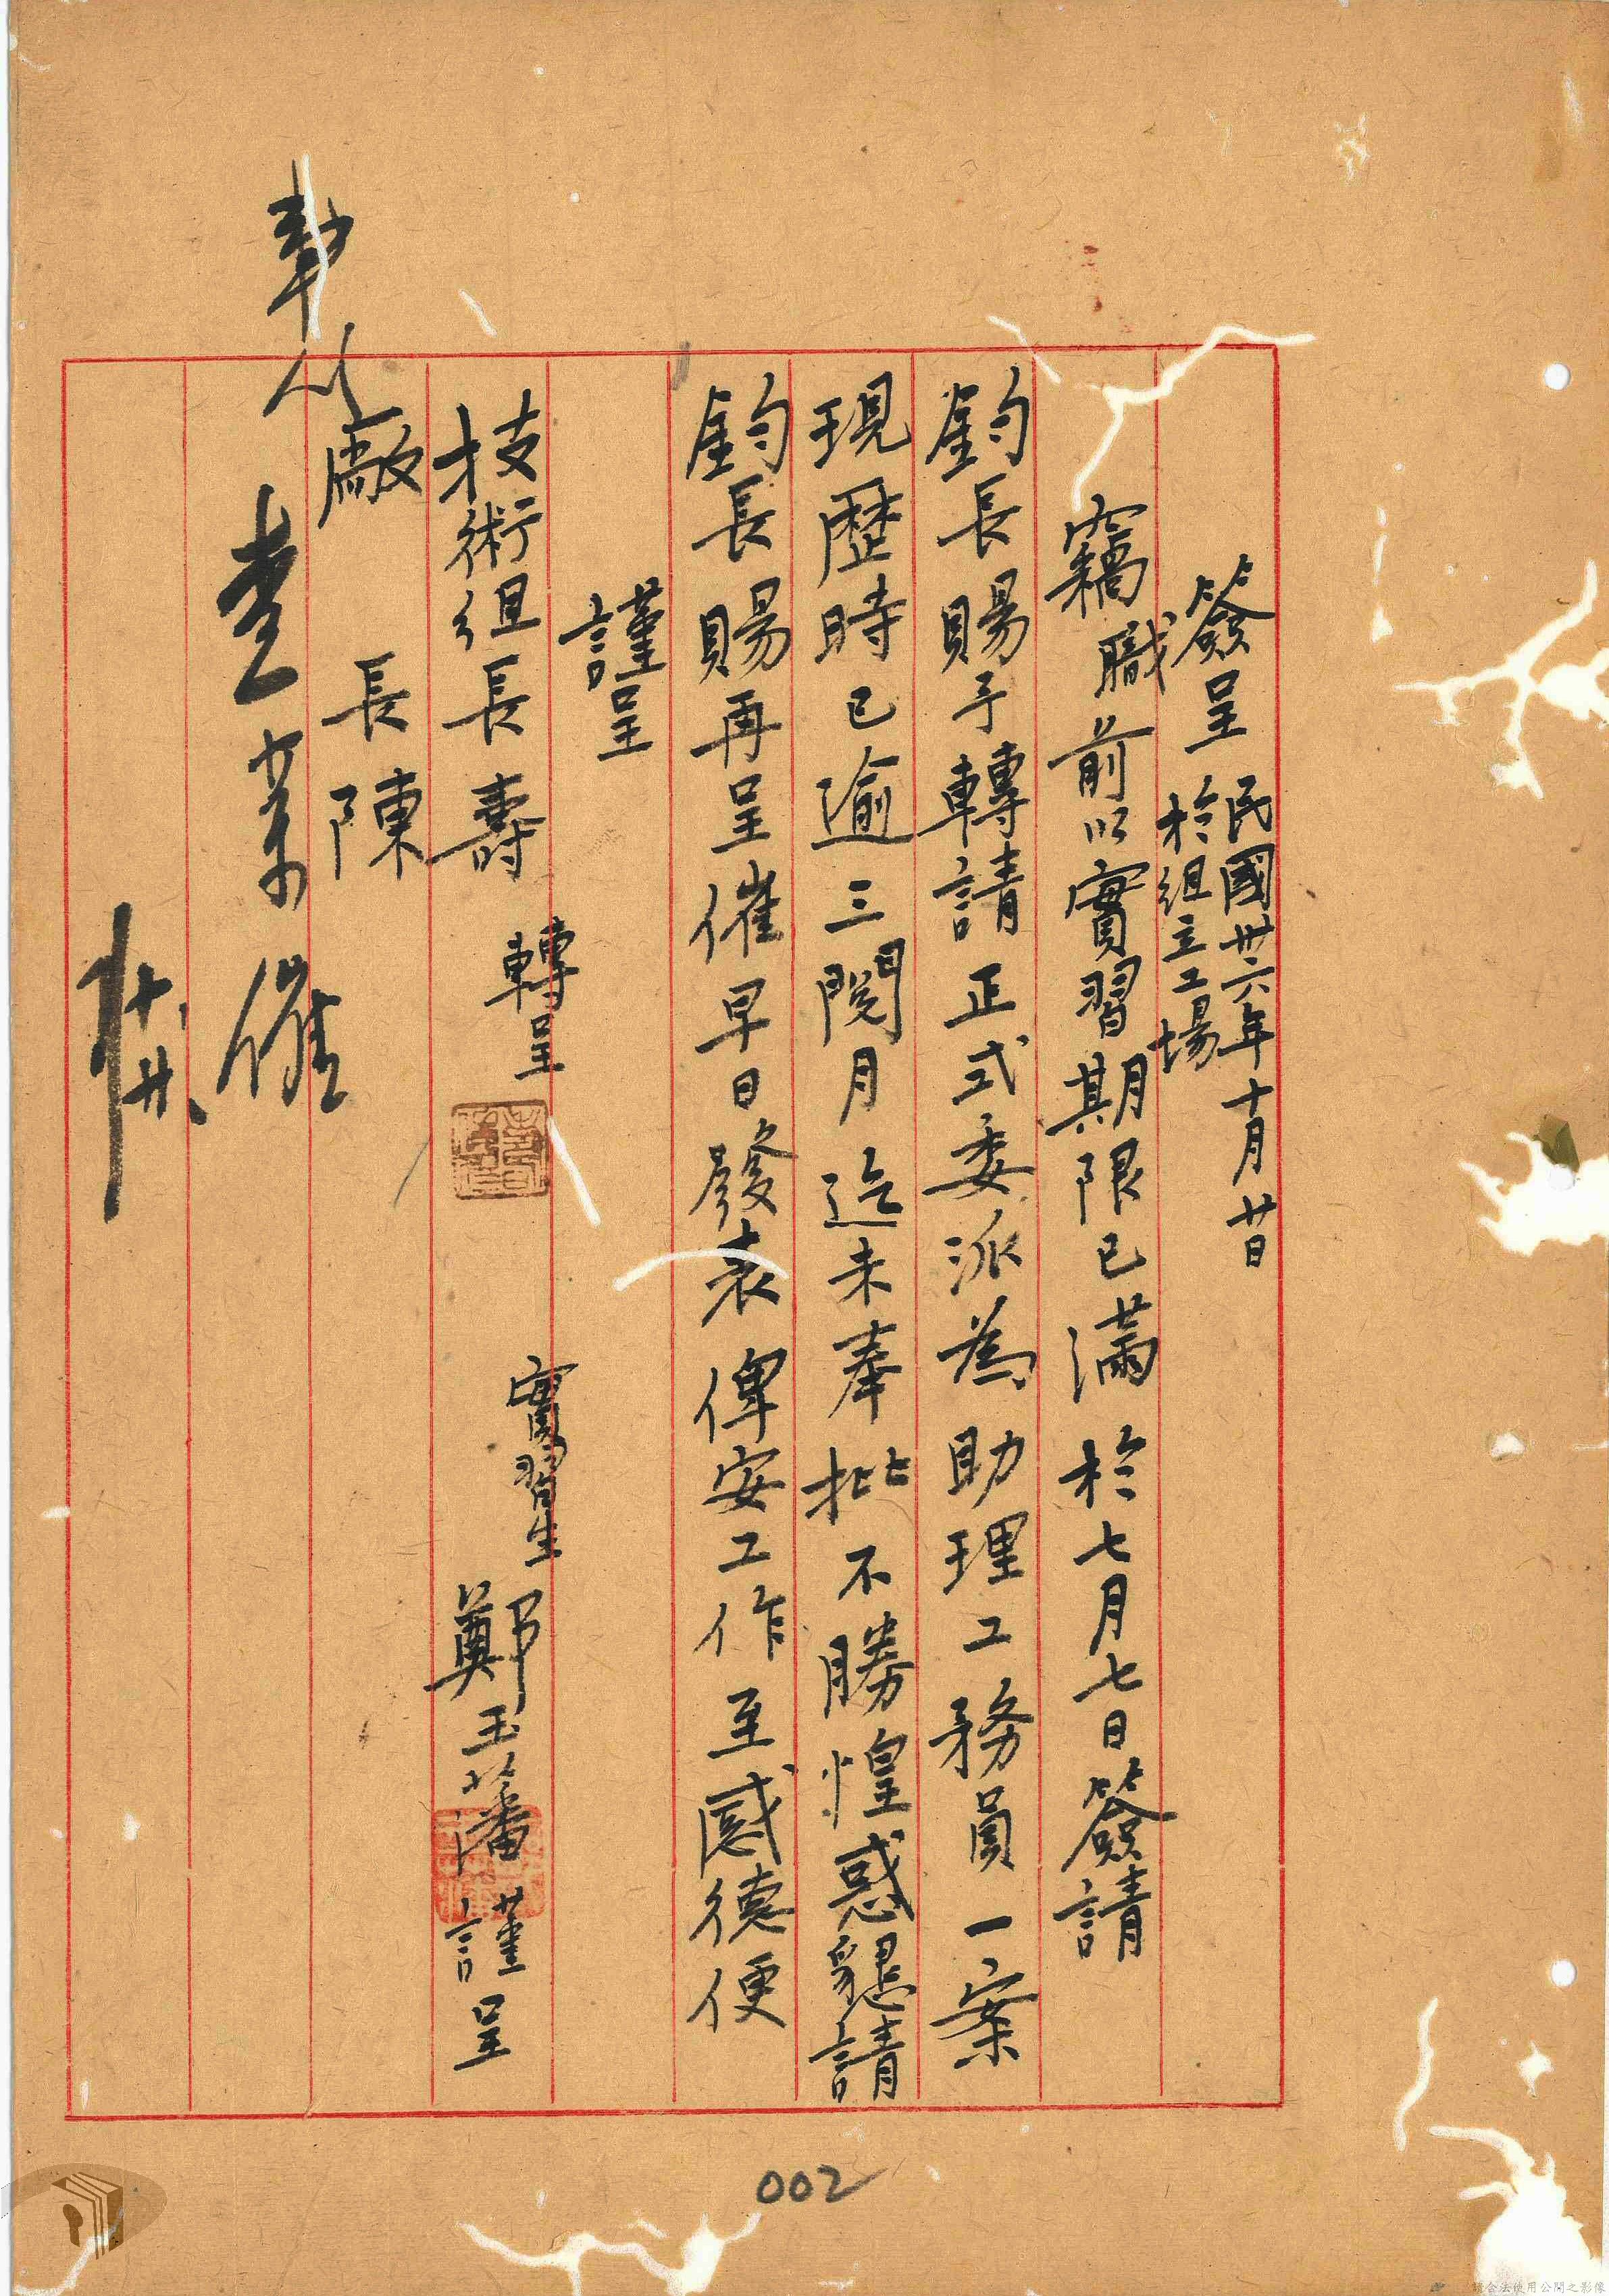 簽呈 民國卅六年十月廿日
於組立工場
竊職前以實習期限已滿於七月七日簽請
鈞長賜予轉請正式委派為助理工務員一案
現歷時已逾三閱月迄未奉批不勝惶惑懇請
鈞長賜再呈催早日發表俾安工作至感德便
謹呈
技術組長壽 轉呈
廠長陳
實習生 鄭玉藩 謹呈
002
請合法使用公開之影像